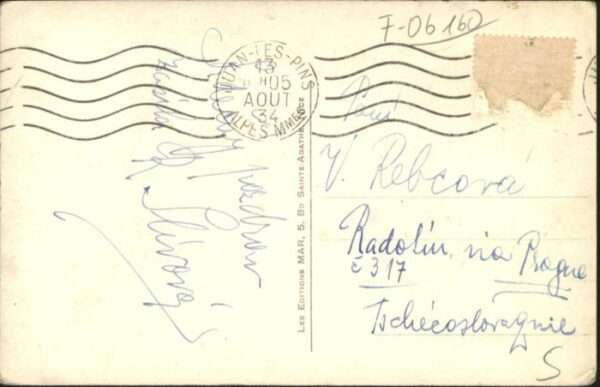 F-06160
JUAN-LES-PINS
13
AOUT
34
ALPES MMES
pozdrav
LES EDITIONS MAR, 5, BD SAINTE AGATHE
Paní
V. Rebcová
Radotín, via Prague
č 317
Tschécoslovaquie
S